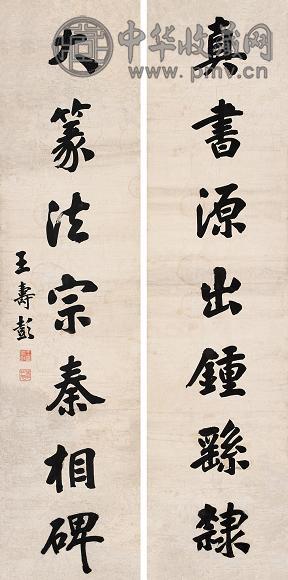 真書源出鍾繇隸
大篆法宗秦相碑
王壽彭
中华收藏网
www.pmv.cn